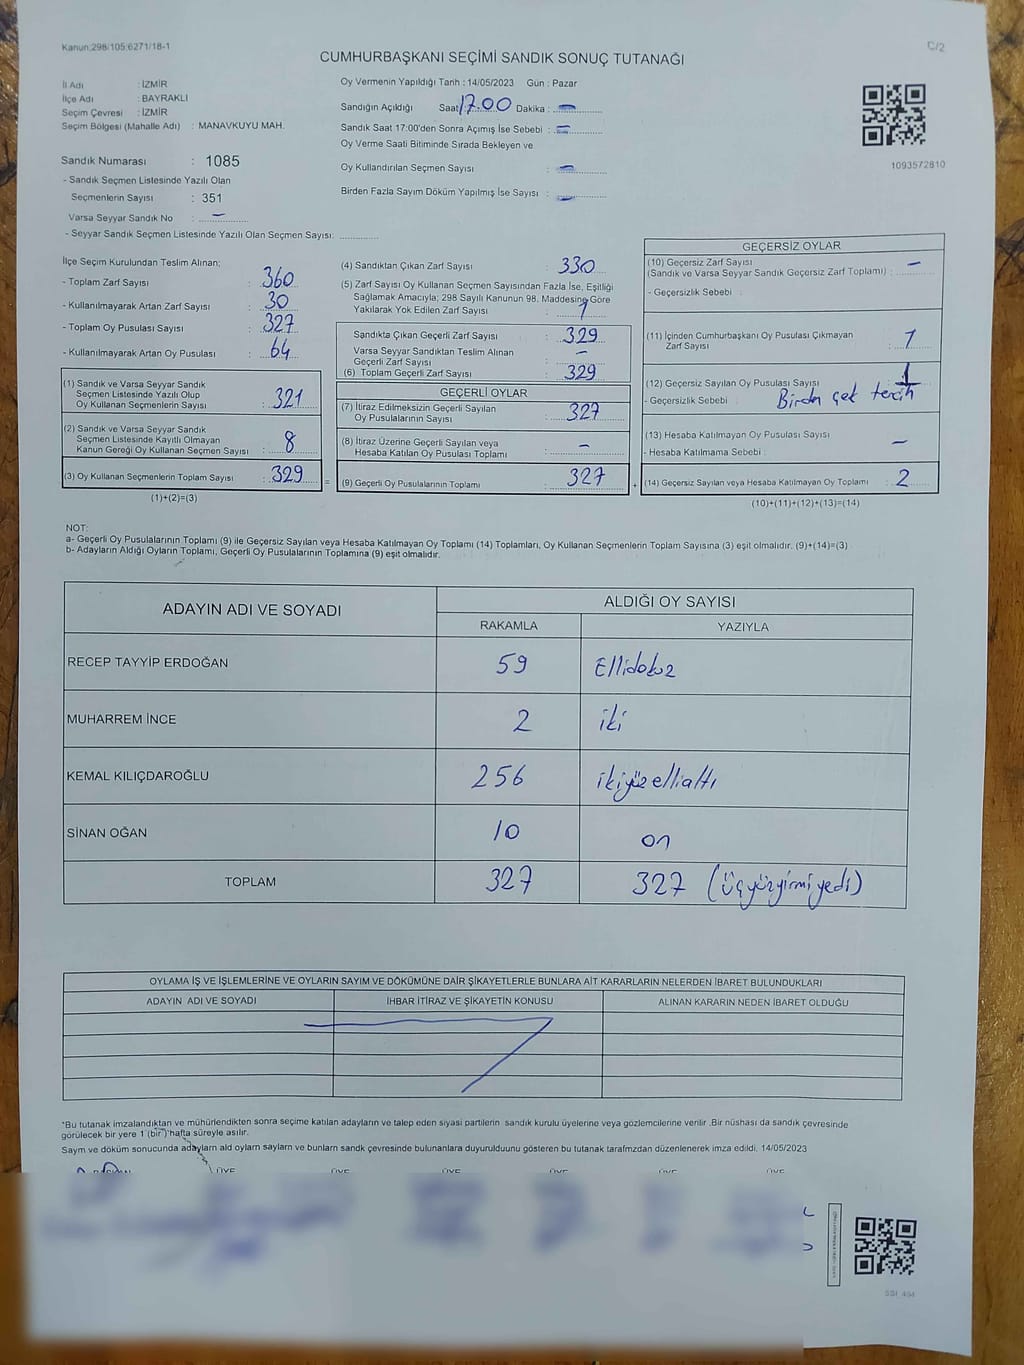 Kanun:298/105:6271/18-1
C/2
CUMHURBAŞKANI SEÇİMİ SANDIK SONUÇ TUTANAĞI
İl Adı : İZMİR
İlçe Adı : BAYRAKLI
Seçim Çevresi : İZMİR
Seçim Bölgesi (Mahalle Adı) : MANAVKUYU MAH.
Sandık Numarası : 1085
- Sandık Seçmen Listesinde Yazılı Olan
Seçmenlerin Sayısı : 351
Varsa Seyyar Sandık No : –
- Seyyar Sandık Seçmen Listesinde Yazılı Olan Seçmen Sayısı: ..............
Oy Vermenin Yapıldığı Tarih : 14/05/2023 Gün : Pazar
Sandığın Açıldığı Saat 17.00 Dakika : –
Sandık Saat 17:00'den Sonra Açımış İse Sebebi : –
Oy Verme Saati Bitiminde Sırada Bekleyen ve
Oy Kullandırılan Seçmen Sayısı : –
Birden Fazla Sayım Döküm Yapılmış İse Sayısı : –
1093572810
İlçe Seçim Kurulundan Teslim Alınan;
- Toplam Zarf Sayısı : 360
- Kullanılmayarak Artan Zarf Sayısı : 30
- Toplam Oy Pusulası Sayısı : 327
- Kullanılmayarak Artan Oy Pusulası : 64
(1) Sandık ve Varsa Seyyar Sandık
Seçmen Listesinde Yazılı Olup
Oy Kullanan Seçmenlerin Sayısı : 321
(2) Sandık ve Varsa Seyyar Sandık
Seçmen Listesinde Kayıtlı Olmayan
Kanun Gereği Oy Kullanan Seçmen Sayısı : 8
(3) Oy Kullanan Seçmenlerin Toplam Sayısı : 329
(1)+(2)=(3)
(4) Sandıktan Çıkan Zarf Sayısı : 330
(5) Zarf Sayısı Oy Kullanan Seçmen Sayısından Fazla İse, Eşitliği
Sağlamak Amacıyla; 298 Sayılı Kanunun 98. Maddesine Göre
Yakılarak Yok Edilen Zarf Sayısı : 1
Sandıkta Çıkan Geçerli Zarf Sayısı : 329
Varsa Seyyar Sandıktan Teslim Alınan
Geçerli Zarf Sayısı : –
(6) Toplam Geçerli Zarf Sayısı : 329
GEÇERLİ OYLAR
(7) İtiraz Edilmeksizin Geçerli Sayılan
Oy Pusulalarının Sayısı : 327
(8) İtiraz Üzerine Geçerli Sayılan veya
Hesaba Katılan Oy Pusulası Toplamı : –
= (9) Geçerli Oy Pusulalarının Toplamı : 327
GEÇERSİZ OYLAR
(10) Geçersiz Zarf Sayısı
(Sandık ve Varsa Seyyar Sandık Geçersiz Zarf Toplamı) : –
- Geçersizlik Sebebi :
(11) İçinden Cumhurbaşkanı Oy Pusulası Çıkmayan
Zarf Sayısı : 1
(12) Geçersiz Sayılan Oy Pusulası Sayısı : 1
- Geçersizlik Sebebi : Birden çok tercih
(13) Hesaba Katılmayan Oy Pusulası Sayısı : –
- Hesaba Katılmama Sebebi :
+ (14) Geçersiz Sayılan veya Hesaba Katılmayan Oy Toplamı : 2
(10)+(11)+(12)+(13)=(14)
NOT:
a- Geçerli Oy Pusulalarının Toplamı (9) ile Geçersiz Sayılan veya Hesaba Katılmayan Oy Toplamı (14) Toplamları, Oy Kullanan Seçmenlerin Toplam Sayısına (3) eşit olmalıdır. (9)+(14)=(3)
b- Adayların Aldığı Oyların Toplamı, Geçerli Oy Pusulalarının Toplamına (9) eşit olmalıdır.
ADAYIN ADI VE SOYADI
ALDIĞI OY SAYISI
RAKAMLA YAZIYLA
RECEP TAYYİP ERDOĞAN 59 Ellidokuz
MUHARREM İNCE 2 iki
KEMAL KILIÇDAROĞLU 256 ikiyüzellialtı
SİNAN OĞAN 10 on
TOPLAM 327 327 (üçyüzyirmiyedi)
OYLAMA İŞ VE İŞLEMLERİNE VE OYLARIN SAYIM VE DÖKÜMÜNE DAİR ŞİKAYETLERLE BUNLARA AİT KARARLARIN NELERDEN İBARET BULUNDUKLARI
ADAYIN ADI VE SOYADI İHBAR İTİRAZ VE ŞİKAYETİN KONUSU ALINAN KARARIN NEDEN İBARET OLDUĞU
*Bu tutanak imzalandıktan ve mühürlendikten sonra seçime katılan adayların ve talep eden siyasi partilerin sandık kurulu üyelerine veya gözlemcilerine verilir. Bir nüshası da sandık çevresinde
görülecek bir yere 1 (bir) hafta süreyle asılır.
Sayım ve döküm sonucunda adayların ald oyların sayların ve bunların sandk çevresinde bulunanlara duyurulduunu gösteren bu tutanak tarafmzdan düzenlenerek imza edildi. 14/05/2023
ÜYE ÜYE ÜYE ÜYE ÜYE ÜYE